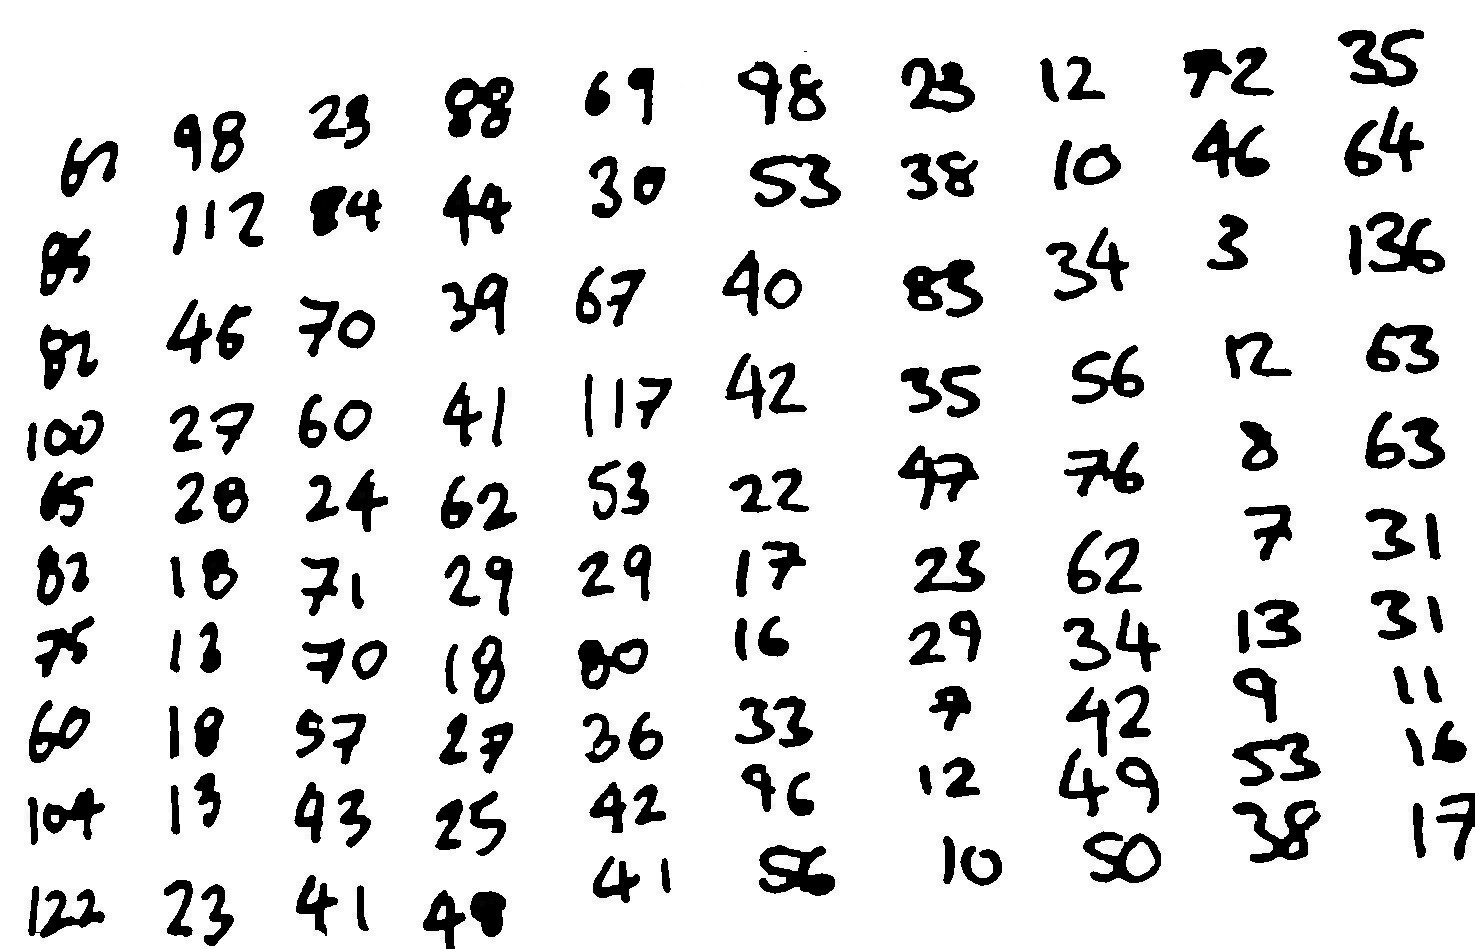 67 98 23 88 69 98 23 12 72 35
85 112 84 44 30 53 38 10 46 64
82 46 70 39 67 40 83 34 3 136
100 27 60 41 117 42 35 56 12 63
65 28 24 62 53 22 47 76 8 63
82 18 71 29 29 17 23 62 7 31
75 13 70 18 80 16 29 34 13 31
60 18 57 27 36 33 7 42 9 11
104 13 43 25 42 46 12 49 53 16
122 23 41 48 41 56 10 50 38 17